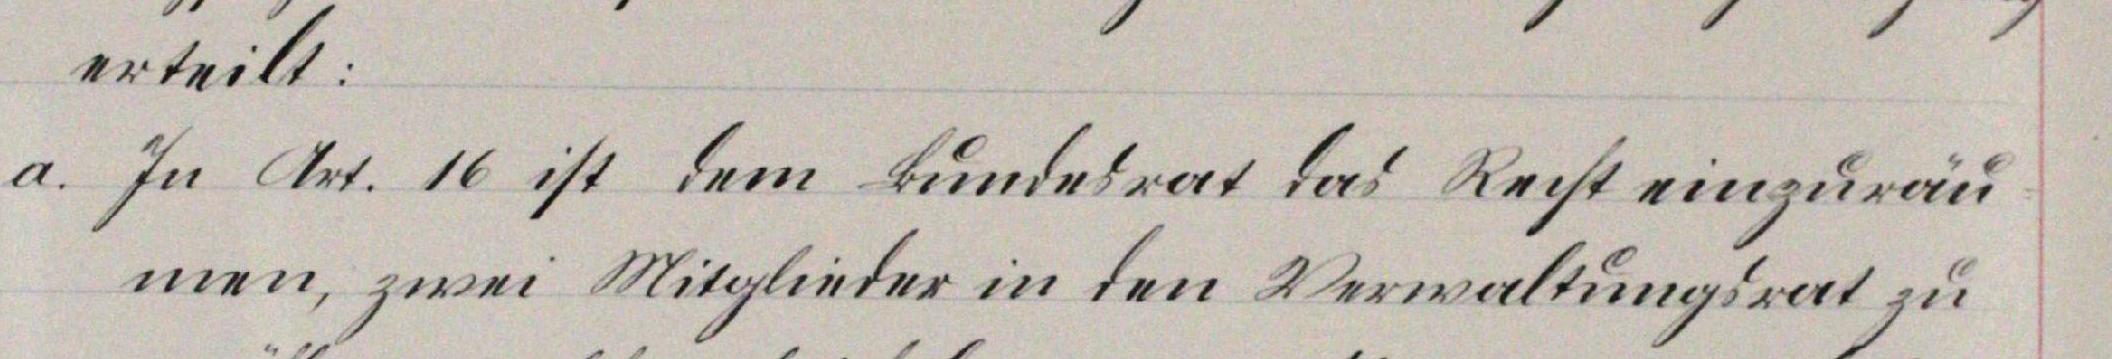 erteilt:
a. In Art. 16 ist dem Bundesrat das Recht einzuräu-
men, zwei Mitglieder in den Verwaltungsrat zu